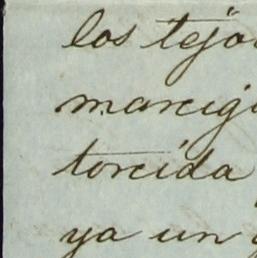 los tejo
marcig
torcida
ya un